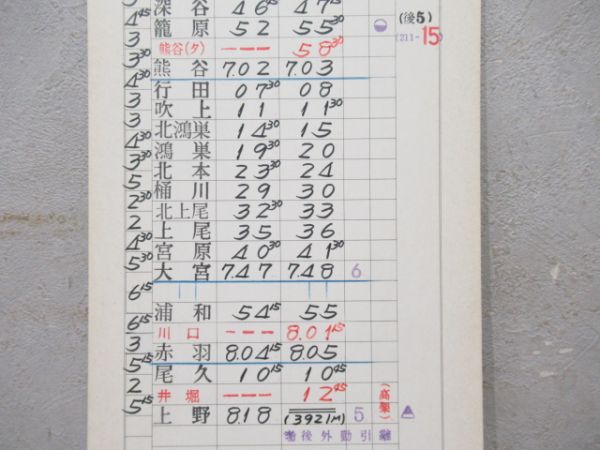 4 15 深谷 46 15 47 15
3 籠原 52 55 30 (後5)
3 熊谷(タ) --- 58 30 (211- 15
3 30 熊谷 7.02 7.03
4 30 行田 07 30 08
3 吹上 11 11 30
3 北鴻巣 14 30 15
4 30 鴻巣 19 30 20
3 30 北本 23 30 24
5 桶川 29 30
2 30 北上尾 32 30 33
2 上尾 35 36
4 30 宮原 40 30 41 30
5 30 大宮 7.47 7.48 6
6 15
浦和 54 15 55
6 15 川口 --- 8.01 15
3 赤羽 8.04 15 8.05
5 15 尾久 10 15 10 45
2 井堀 --- 12 45 (高架)
5 15 上野 8.18 (3921M) 5
着後外勤引継